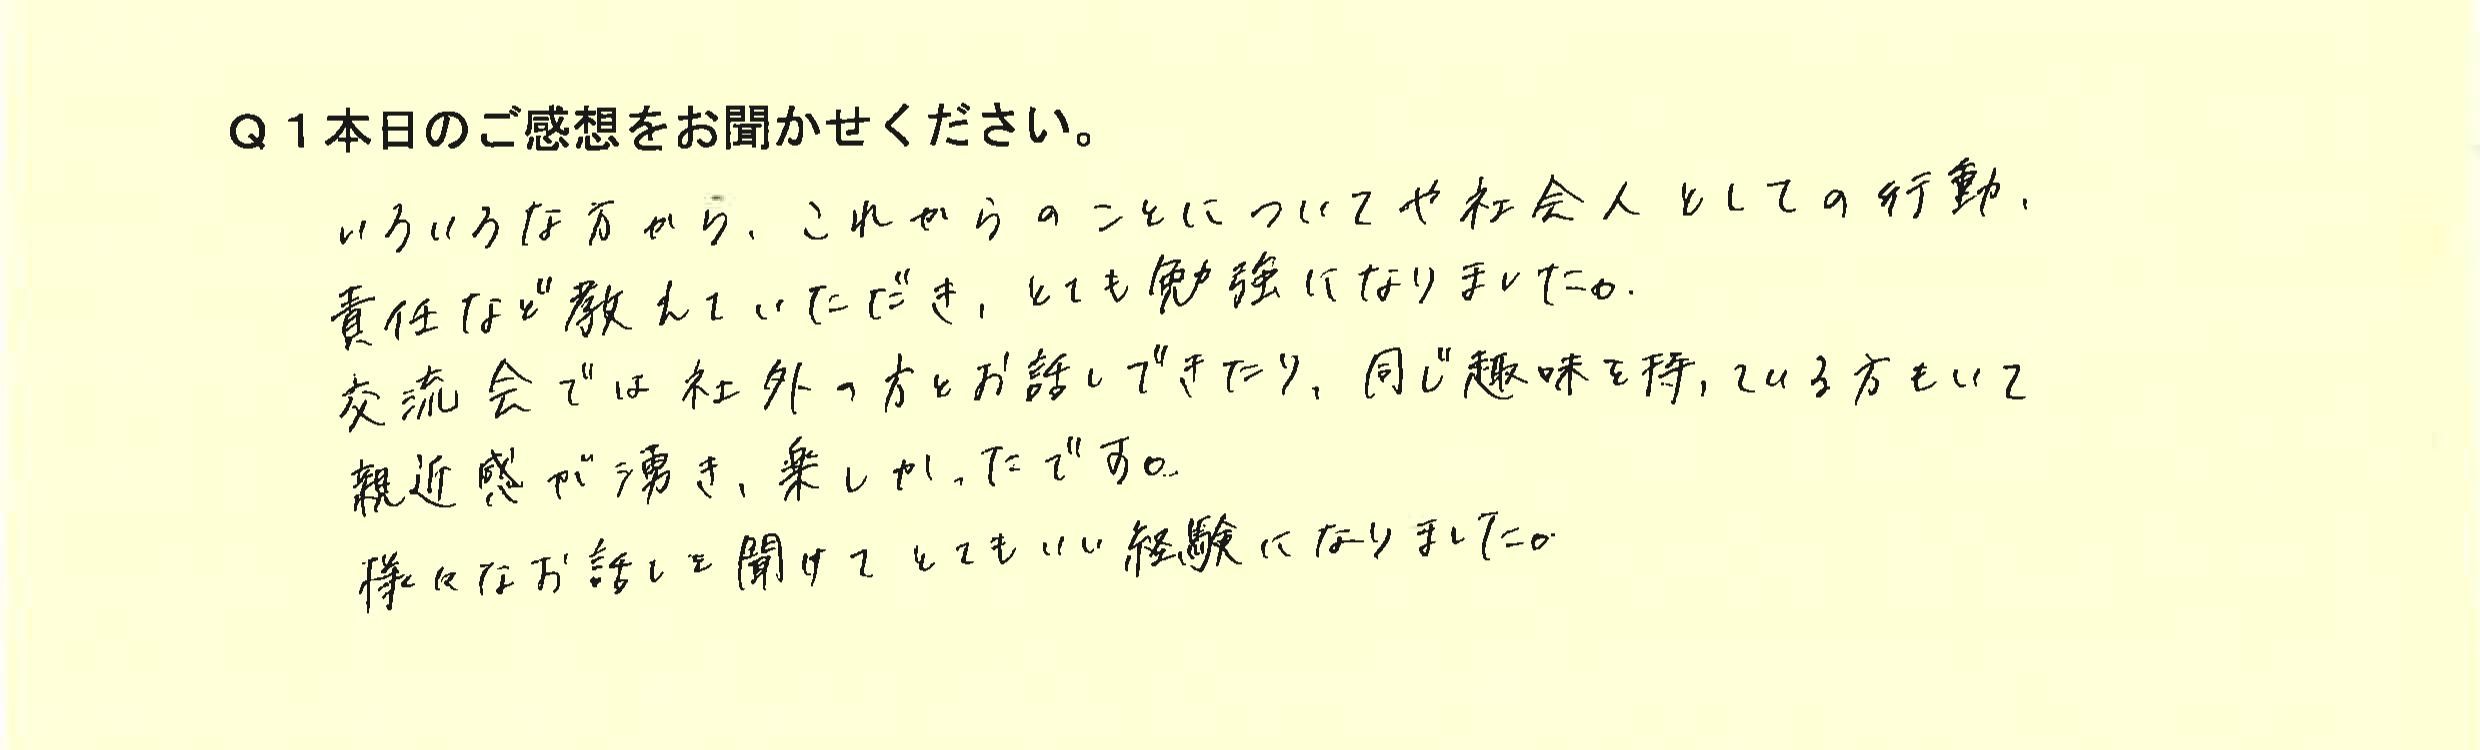 Q1本日のご感想をお聞かせください。
いろいろな方から、これからのことについてや社会人としての行動、
責任など教えていただき、とても勉強になりました。
交流会では社外の方とお話しできたり、同じ趣味を持っている方もいて
親近感が湧き、楽しかったです。
様々なお話しを聞けてとてもいい経験になりました。